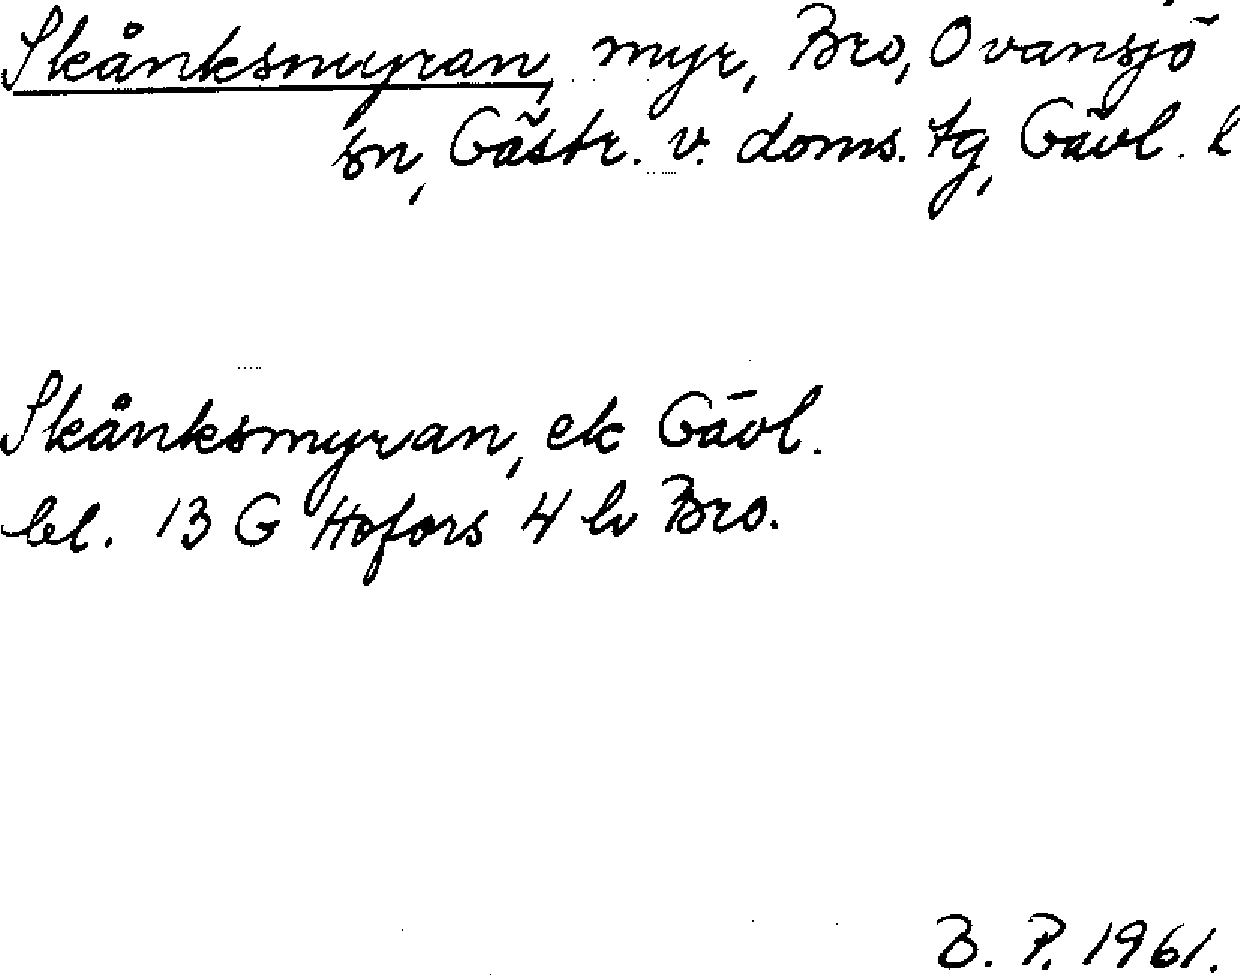 Skånksmyran, myr, Bro, Ovansjö
sn, Gästr. v. doms. tg, Gävl. l
Skånksmyran, ek Gävl.
bl. 13 G Hofors 4 h Bro.
B. P. 1961.